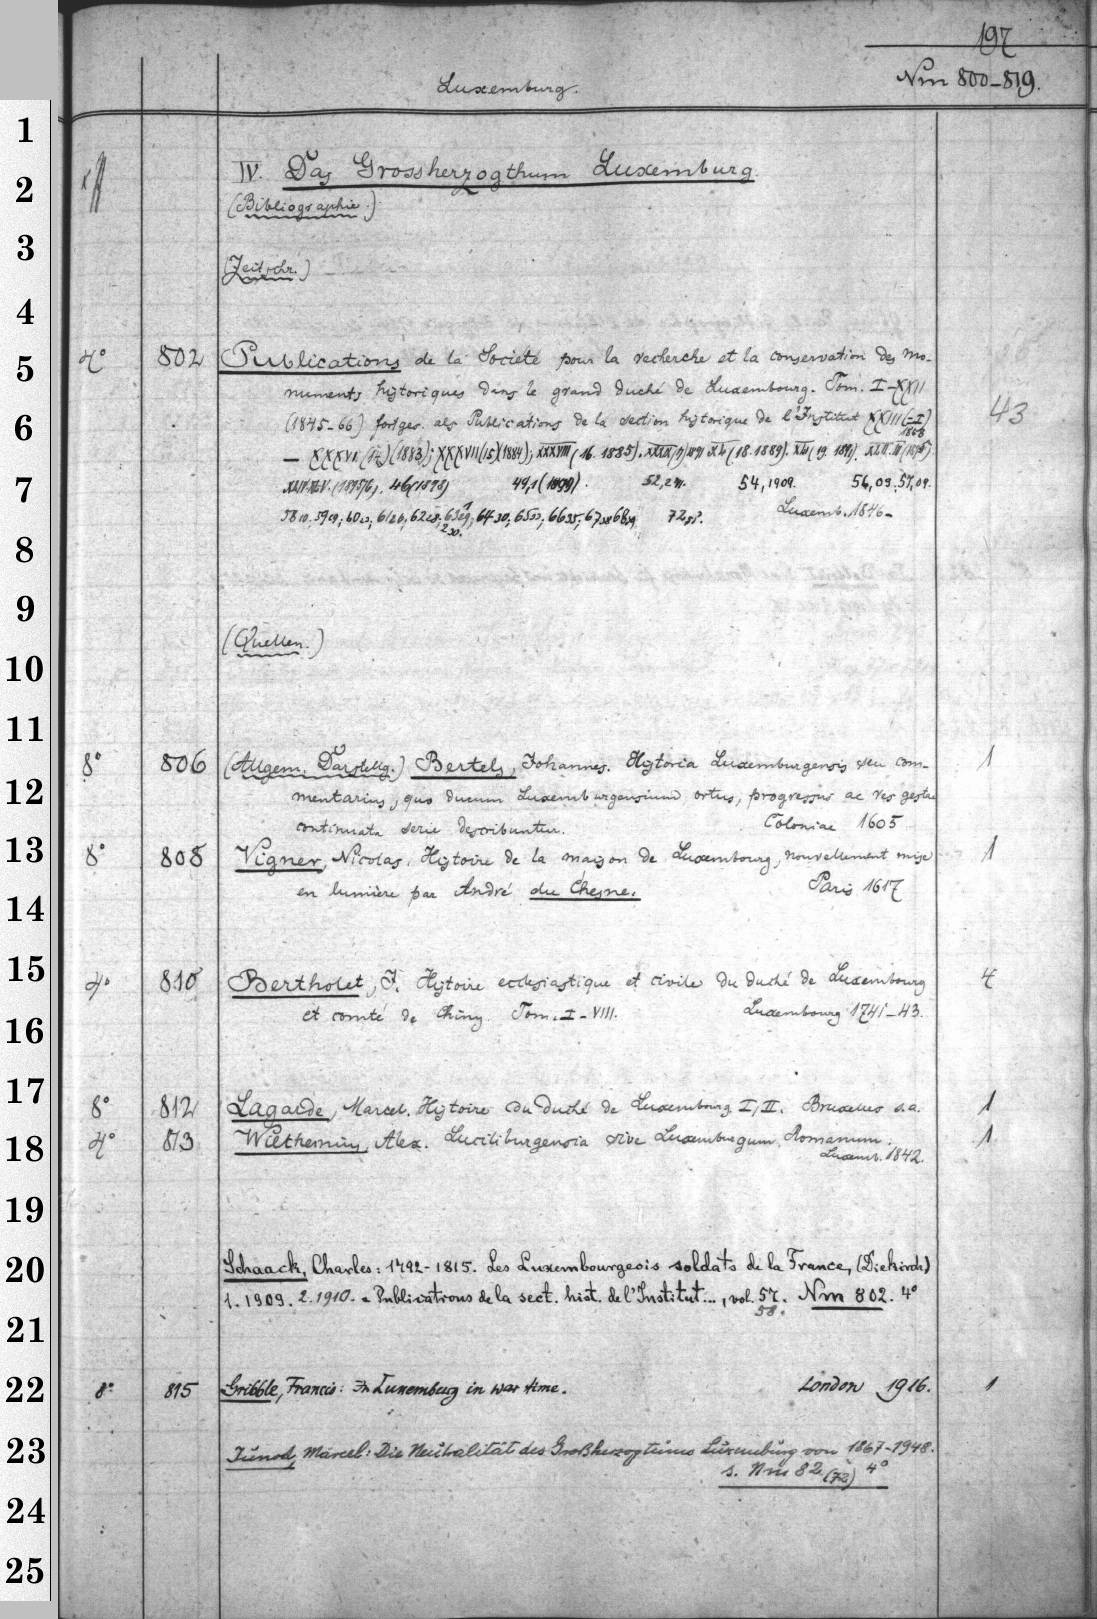 197
Luxemburg.
Nm 800-819.
IV. Das Grossherzogthum Luxemburg.
(Bibliographie.)
(Zeitschr.)
4° 802 Publications de la Société pour la recherche et la conservation des mo-
numents historiques dans le grand duché de Luxembourg. Tom. I-XXII
43
(1845-66) fortges. als Publications de la section historique de l'Institut XXIII (=I)
1868
— XXXVI (1883); XXXVII (15) (1884); XXXVIII (16. 1885). XL (18. 1889).
46 (1898) 49,1 (1899). 54, 1909. 56,09. 57,09.
Luxemb. 1846-
(Quellen.)
8° 806 (Allgem. Darstellg.) Bertels, Johannes. Historia Luxemburgensis seu com- 1
mentarius, quo ducum Luxemburgensium ortus, progressus ac res gestae
continuata serie describuntur. Coloniae 1605
8° 808 Vigner, Nicolas. Histoire de la maison de Luxembourg, nouvellement mise 1
en lumière par André du Chesne. Paris 1617
4° 810 Bertholet, J. Histoire ecclesiastique et civile du duché de Luxembourg 4
et comté de Chiny. Tom. I-VIII. Luxembourg 1741-43.
8° 812 Lagarde, Marcel. Histoire du duché de Luxembourg I, II. Bruxelles s.a. 1
4° 813 Wiltheimius, Alex. Luciliburgensia sive Luxemburgum Romanum. 1
Luxemb. 1842.
Schaack, Charles: 1792-1815. Les Luxembourgeois soldats de la France, (Diekirch)
1. 1909. 2. 1910. = Publications de la sect. hist. de l'Institut..., vol. 57. Nm 802. 4°
58.
8° 815 Gribble, Francis: In Luxemburg in war time. London 1916. 1
Junod, Marcel: Die Neutralität des Großherzogtums Luxemburg von 1867-1948.
s. Nm 82 (72) 4°
1
2
3
4
5
6
7
8
9
10
11
12
13
14
15
16
17
18
19
20
21
22
23
24
25